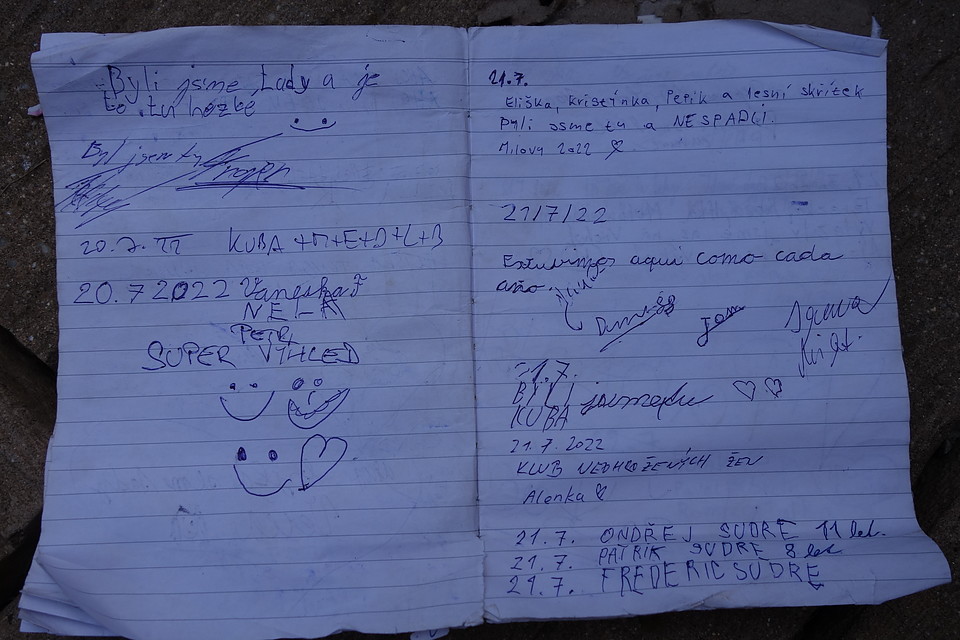 Byli jsme tady a je
to tu hezké
Byl jsem tu
20.7.22 KUBA +M+E+D+L+B
20.7 2022 Vaneska
NELA
PETR
SUPER VÝHLED
21.7.
Eliška, Kristínka, Pepik a lesní skřítek
Byli jsme tu a NESPADLI.
Milovy 2022
21/7/22
Estuvimos aqui como cada
año.
21.7.
BYLI jsme tu
KUBA
21.7. 2022
KLUB NEOHROŽENÝCH ŽEN
Alenka
21.7. ONDŘEJ SUDRE 11 let.
21.7. PATRIK SUDRE 8 let
21.7. FREDERIC SUDRE